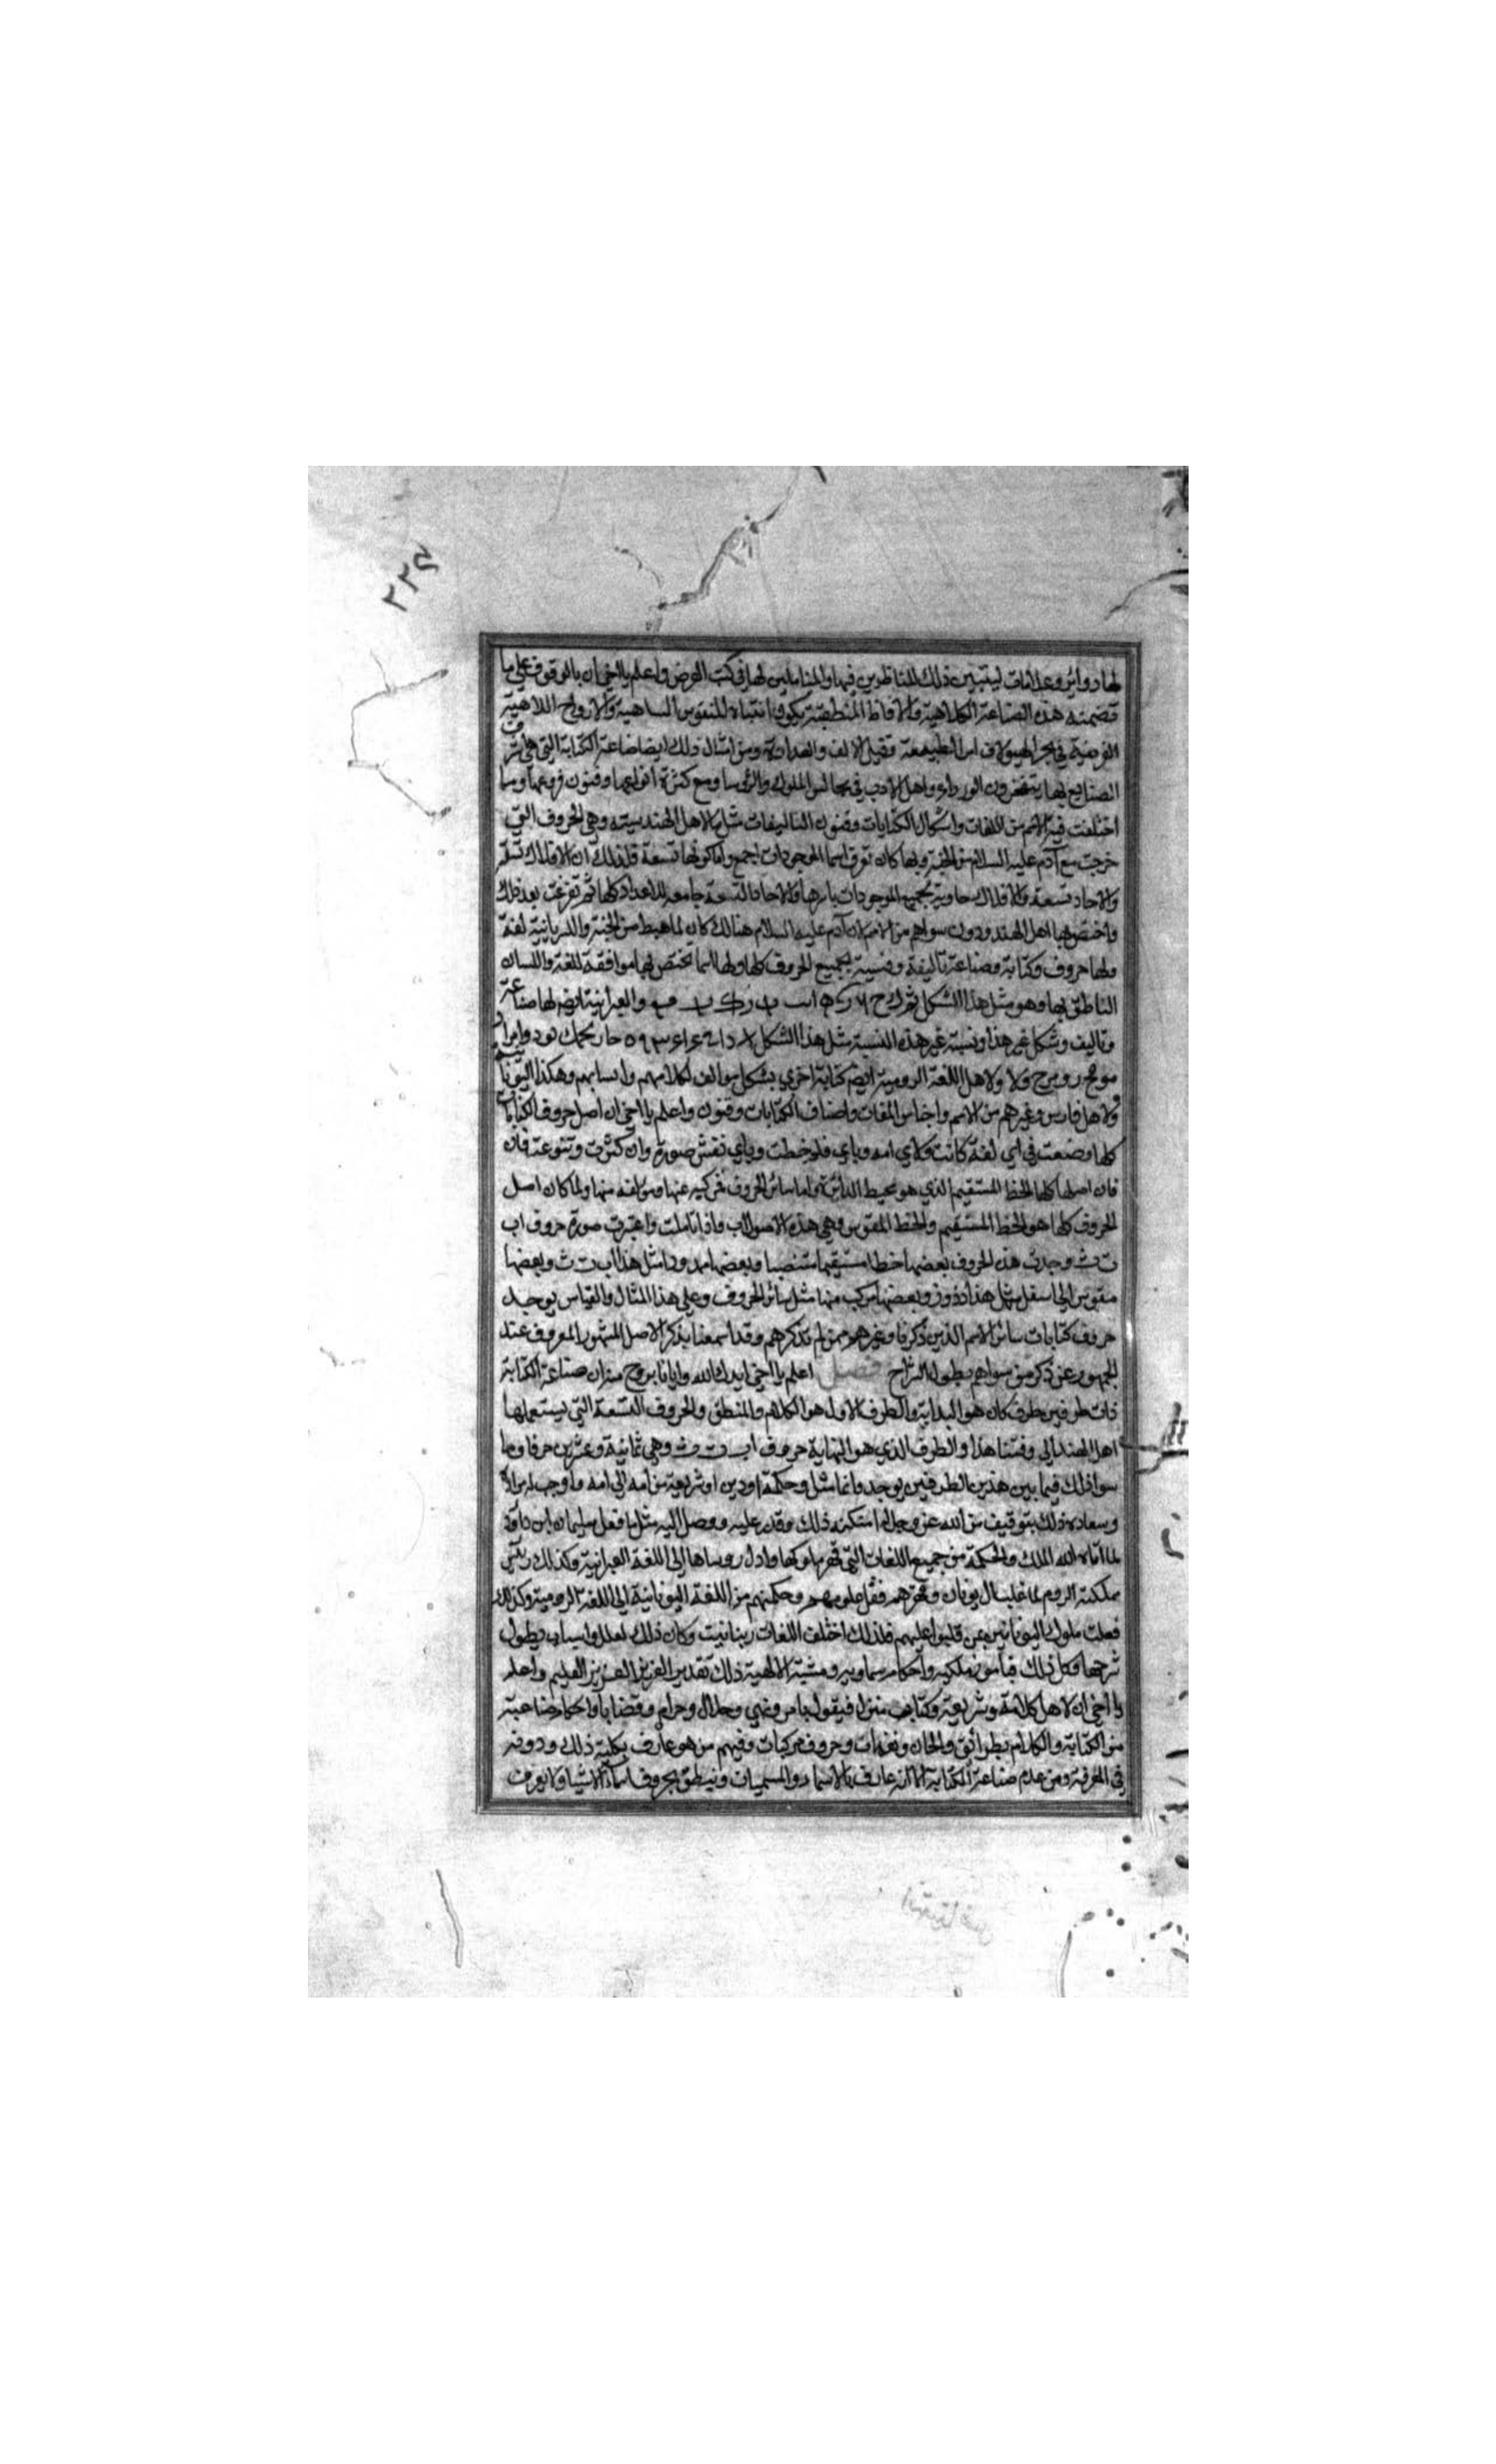 ٢٢٤
لها دوائر وعلامات ليتبين ذلك للناظرين فيها والمتاملين لها في كتب العرض واعلم يا اخي ان بالوقوف على ما
تضمنته هذه الصناعة الكلامية والالفاظ المنطقية يكون انتباه للنفوس الساهية والارواح اللاهية
في بحر الهيولى الطبيعة فقيل الالف والعداوة ومن امثال ذلك ايضا صناعة الكتابة التي هي اشرف
الصنايع بها يفتخرون الوزراء واهل الادب في مجالس الملوك والرؤسا ومع كثرة انواعها وفنون فروعها وما
اختلفت فيه الامم من اللغات واشكال الكتابات وفنون التاليفات مثل ما لاهل الهند سيته وهي الحروف التي
خرجت مع آدم عليه السلام من الجنة وبها كان تعرف اسما الموجودات اجمع واما كونها تسعة فلذلك ان الافلاك تسعة
والاحاد تسعة والافلاك حاوية لجميع الموجودات باسرها والاحاد التسعة جامعه للاعداد كلها ثم تفرغت بعد ذلك
واختص بها اهل الهند ودون سواهم من الامم لان آدم عليه السلام هنالك كان لما هبط من الجنة والسريانية لغة
ولها حروف وكتابة وصناعة تاليفة ونسبة لجميع الحروف كلها ولها اسما تختص بها موافقة للغة واللسان
الناطق بها وهو مثل هذا الشكل والعبرانية ايضا لها صناعة
وتاليف وشكل غير هذا ونسبة غير هذه النسبة مثل هذا الشكل
ولاهل اللغة الرومية ايضا كتابة اخرى بشكل موالف لكلامهم وانسابهم وهكذا اليونانية
ولاهل فارس وغيرهم من الامم واجناس اللغات واصناف الكتابات وفنون واعلم يا اخي ان اصل حروف الكتابات
كلها وضعت في اي لغة كانت ولاي امه وباي قلم خطت وباي نقش صورة وان كثرت وتنوعت فان
فان اصلها كلها الخط المستقيم الذي هو محيط الدائرة واما سائر الحروف فمركبة عنها ومؤلفه منها ولما كان اصل
الحروف كلها هو الخط المستقيم والخط المقوس وهي هذه الاصول اب واذا تاملت واعتبرت صورة حروف اب
ت ث وجدت هذه الحروف بعضها خطا مستقيما منتصبا وبعضها ممدودا مثل هذا اب ت ث وبعضها
مقوس الى اسفل مثل هذا د ذ و ز وبعضها مركب منها مثل سائر الحروف وعلى هذا المثال والقياس يوجد
حروف كتابات سائر الامم الذين ذكرنا وغيرهم ممن لم نذكرهم وقد اسمعنا بذكر الاصل المشهور المعروف عند
الجمهور عن ذكر من سواهم بطول الشراح فصل اعلم يا اخي ايدك الله وايانا بروح منه ان صناعة الكتابة
ذات طرفين طرف كان هو البداية والطرف الاول هو الكلام والمنطق والحروف التسعة التي يستعملها
اهل الهند الى وقتنا هذا والطرف الذي هو النهاية حروف اب ت ث وهي ثمانية وعشرين حرفا وما
سوا ذلك فيما بين هذين الطرفين يوجد وانما مثل وحكمة او دين او شريعة من امه الى امه واوجب له مراد
وسعاده ذلك بتوفيق من الله عز وجل امتكنه ذلك وقدر عليه ووصل اليه مثل ما فعل سليمان ابن داود
لما اتاه الله الملك والحكمة من جميع اللغات التي قهر ملوكها واذل روساها الى اللغة العبرانية وكذلك
مملكة الروم لما غلب ال يونان وقهرهم فنقل علومهم وحكمتهم من اللغة اليونانية الى اللغة الرومية وكذلك
فعلت ملوك اليونانيين بمن غلبوا عليهم فلذلك اختلف اللغات وكان ذلك لعلل واسباب يطول
شرحها وكل ذلك بامور ملكيه واحكام سماويه ومشية الالهية ذلك تقدير العزيز العليم واعلم
يا اخي ان لاهل كل امة وشريعة وكتاب منزل فيقول بامر ونهي وحلال وحرام وقضايا واحكام صناعية
من الكتابة والكلام بطرائق والحان ونغمات وحروف مركبات وفيهم من هو عارف بكلية ذلك ودونه
في المعرفة ومن عدم صناعة الكتابة الا انه عارف بالاسماء والمسميات وينطق بحروف اسماء الاشيا ولا يعرف